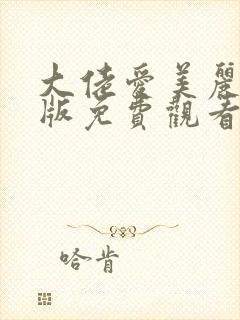 大佬愛美麗
版免費觀看
哈肯